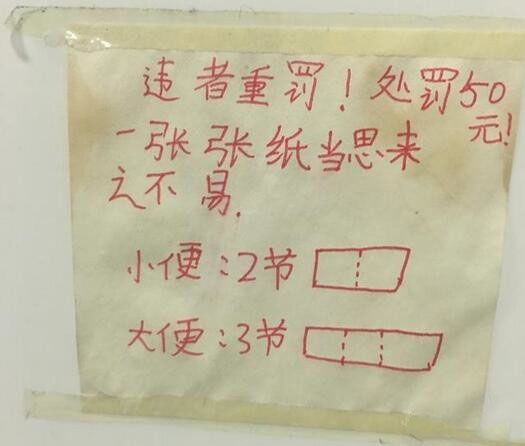 违者重罚！处罚50元！
一张张纸当思来
之不易.
小便：2节
大便：3节